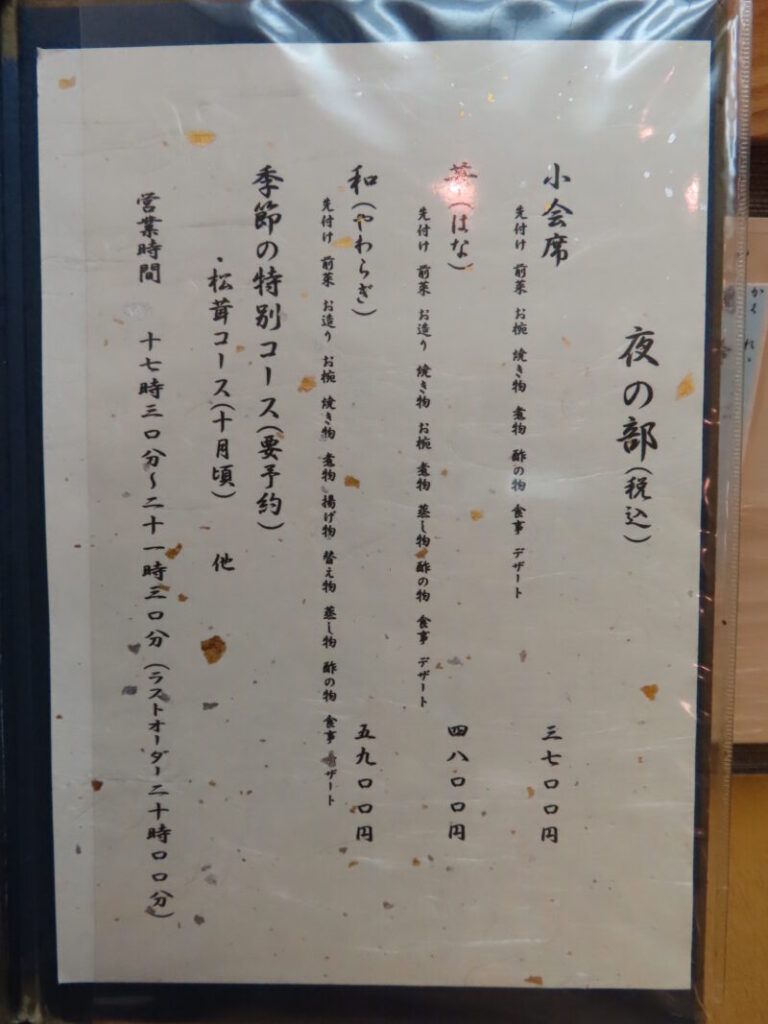 夜の部(税込)
小会席
先付け 前菜 お椀 焼き物 煮物 酢の物 食事 デザート
三七〇〇円
華(はな)
先付け 前菜 お造り 焼き物 お椀 煮物 蒸し物 酢の物 食事 デザート
四八〇〇円
和(やわらぎ)
先付け 前菜 お造り お椀 焼き物 煮物 揚げ物 替え物 蒸し物 酢の物 食事 デザート
五九〇〇円
季節の特別コース(要予約)
・松茸コース(十月頃) 他
営業時間 十七時三〇分～二十一時三〇分 (ラストオーダー二十時〇〇分)